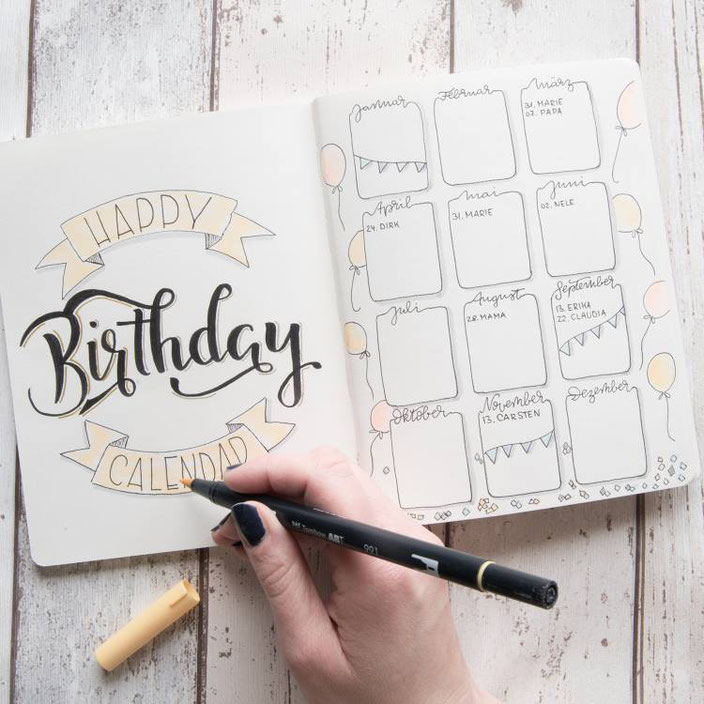 HAPPY
Birthday
CALENDAR
Januar
Februar
März
31. MARIE
07. PAPA
April
24. DIRK
Mai
31. MARIE
Juni
02. NELE
Juli
August
28. MAMA
September
13. ERIKA
22. CLAUDIA
Oktober
November
13. CARSTEN
Dezember
Tombow ABT
991